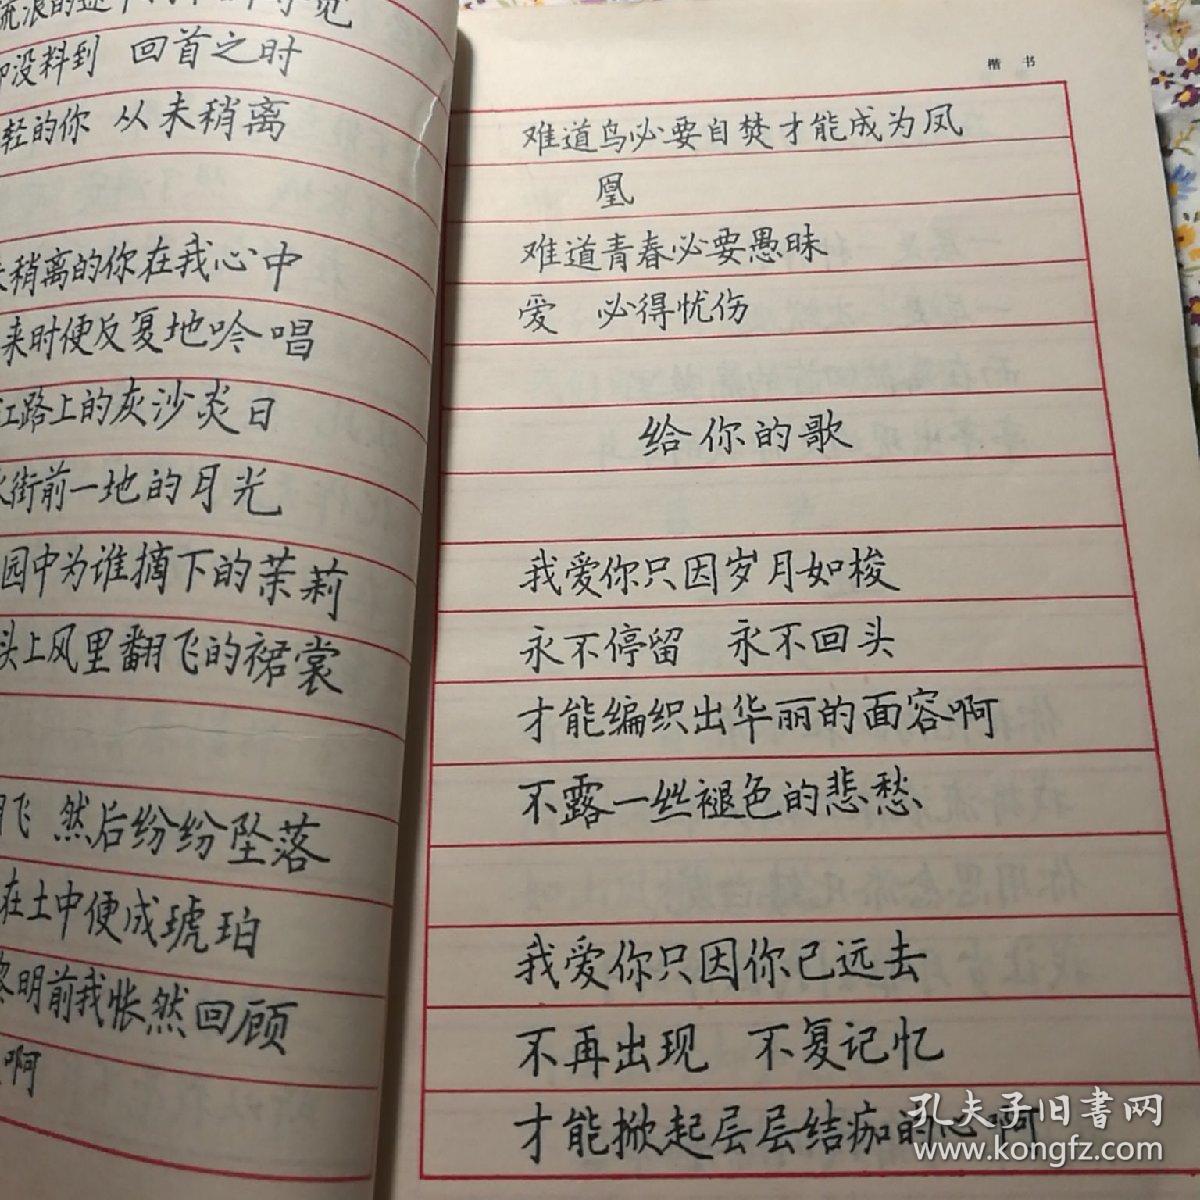 回首之时
轻的你 从未稍离
稍离的你在我心中
来时便反复地吟唱
江路上的灰沙炎日
街前一地的月光
园中为谁摘下的茉莉
头上风里翻飞的裙裳
飞 然后纷纷坠落
在土中便成琥珀
黎明前我怅然回顾
啊
楷书
难道鸟必要自焚才能成为凤
凰
难道青春必要愚昧
爱 必得忧伤
给你的歌
我爱你只因岁月如梭
永不停留 永不回头
才能编织出华丽的面容啊
不露一丝褪色的悲愁
我爱你只因你已远去
不再出现 不复记忆
才能掀起层层结痂的心啊
孔夫子旧书网
www.kongfz.com